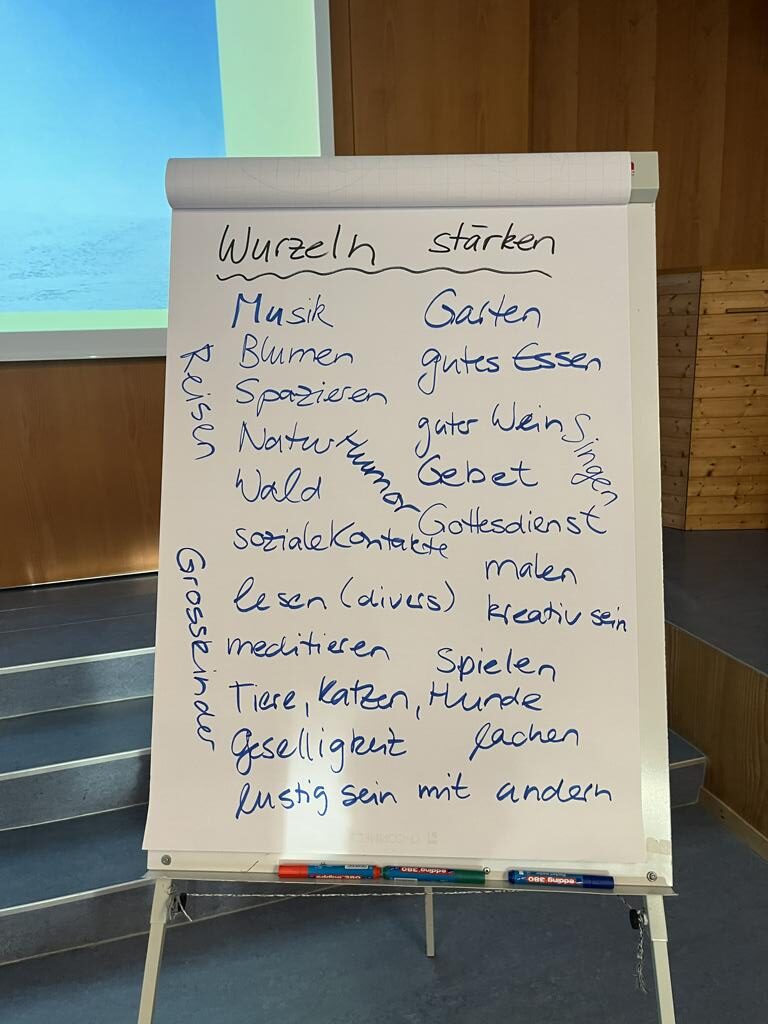 Wurzeln stärken
Musik Garten
Blumen gutes Essen
Reisen
Spazieren
Natur guter Wein Singen
Humor
Wald Gebet
Gottesdienst
soziale Kontakte
malen
lesen (divers) kreativ sein
Grosskinder
meditieren Spielen
Tiere, Katzen, Hunde
Geselligkeit lachen
lustig sein mit andern
edding 380
edding 380
edding 380